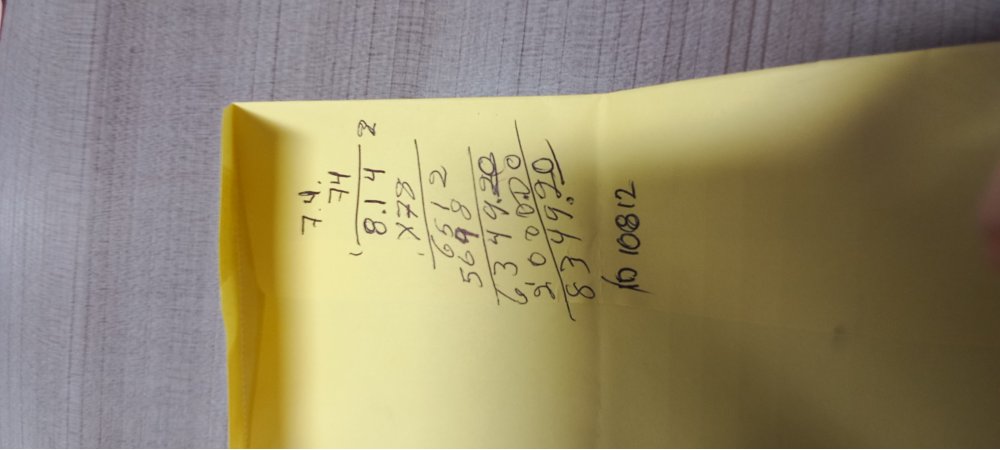 7.4.
74
8.14
×78
6512
5698
6349.20
2,0000.00
8349.20
10812